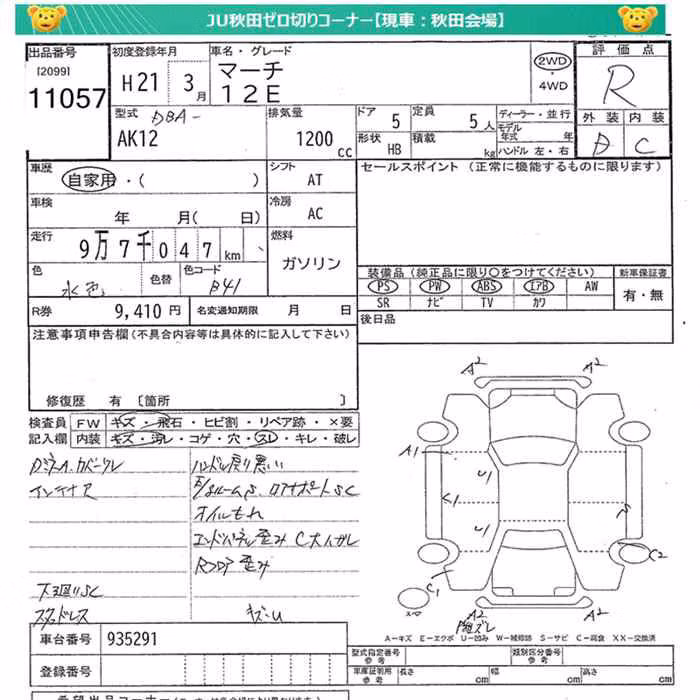 JU秋田ゼロ切りコーナー【現車：秋田会場】
出品番号
[2099]
11057
初度登録年月
H21 3月
車名・グレード
マーチ
12E
2WD
・
4WD
評価点
R
外装 内装
D C
型式 DBA-
AK12
排気量
1200 cc
ドア 5
定員 5人
形状 HB
積載 kg
ディーラー・並行
モデル年式 年
ハンドル 左・右
車歴
自家用・( )
シフト
AT
セールスポイント (正常に機能するものに限ります)
車検
年 月( 日)
冷房
AC
走行
9万7千047km
燃料
ガソリン
色
水色
色替
色コード
B41
装備品(純正品に限り○をつけてください)
新車保証書
PS PW ABS エアB AW
有・無
SR ナビ TV カワ
R券 9,410円
名変通知期限 月 日
後日品
注意事項申告欄(不具合内容等は具体的に記入して下さい)
修復歴 有 〔箇所 〕
検査員
記入欄
FW キズ・飛石・ヒビ割・リペア跡・×要
内装 キズ・汚レ・コゲ・穴・スレ・キレ・破レ
インテキズ
ハンドル戻り悪い
オイルもれ
エンドパネル歪み C大イガレ
Rフロア歪み
下廻りSC
スタッドレス
キズ・U
A2 A2
A1
U1
U1
C1
C2
A2 A2
A-キズ E-エクボ U-凹み W-補修跡 S-サビ C-腐食 XX-交換済
車台番号 935291
登録番号
型式指定番号
参考
類別区分番号
参考
車庫証明用
参考
長さ cm 幅 cm 高さ cm